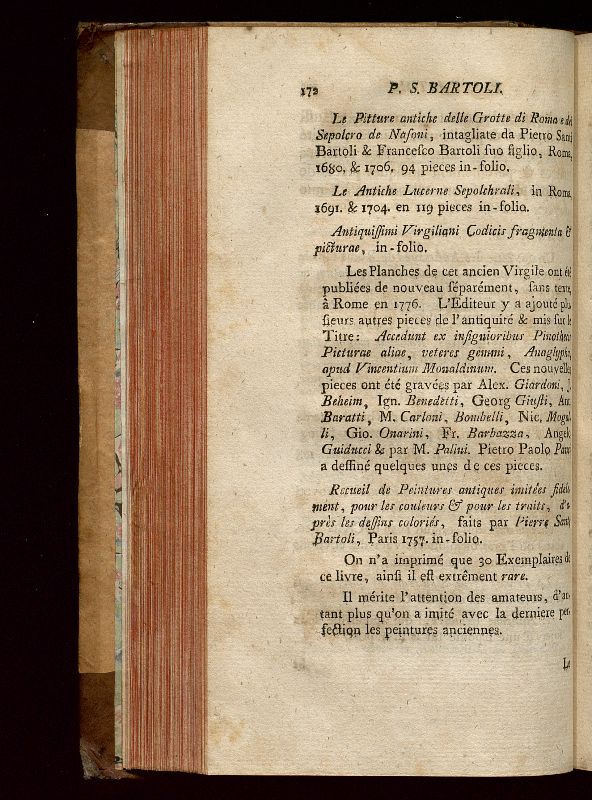 172 P. S. BARTOLI.
Le Pitture antiche delle Grotte di Roma e del
Sepolcro de Nasoni, intagliate da Pietro Santi
Bartoli & Francesco Bartoli suo figlio, Roma,
1680. & 1706. 94 pieces in-folio.
Le Antiche Lucerne Sepolchrali, in Roma
1691. & 1704. en 119 pieces in-folio.
Antiquissimi Virgiliani Codicis fragmenta &
picturae, in-folio.
Les Planches de cet ancien Virgile ont été
publiées de nouveau séparément, sans texte,
à Rome en 1776. L'Editeur y a ajouté plu
sieurs autres pieces de l'antiquiré & mis sur le
Titre: Accedunt ex insignioribus Pinothecis
Picturae aliae, veteres gemmi, Anaglypha,
apud Vincentium Monaldinum. Ces nouvelles
pieces ont été gravées par Alex. Giardoni, J.
Beheim, Ign. Benedetti, Georg Giusti, Ant.
Baratti, M. Carloni, Bombelli, Nic. Mogal
li, Gio. Onarini, Fr. Barbazza, Angelo
Guiducci & par M. Palini. Pietro Paolo
a dessiné quelques unes de ces pieces.
Recueil de Peintures antiques imitées fidele
ment, pour les couleurs & pour les traits, d'a
près les dessins coloriés, faits par Pierre Sante
Bartoli, Paris 1757. in-folio.
On n'a imprimé que 30 Exemplaires de
ce livre, ainsi il est extrêment rare.
Il mérite l'attention des amateurs, d'au
tant plus qu'on a imité avec la derniere per
fection les peintures anciennes.